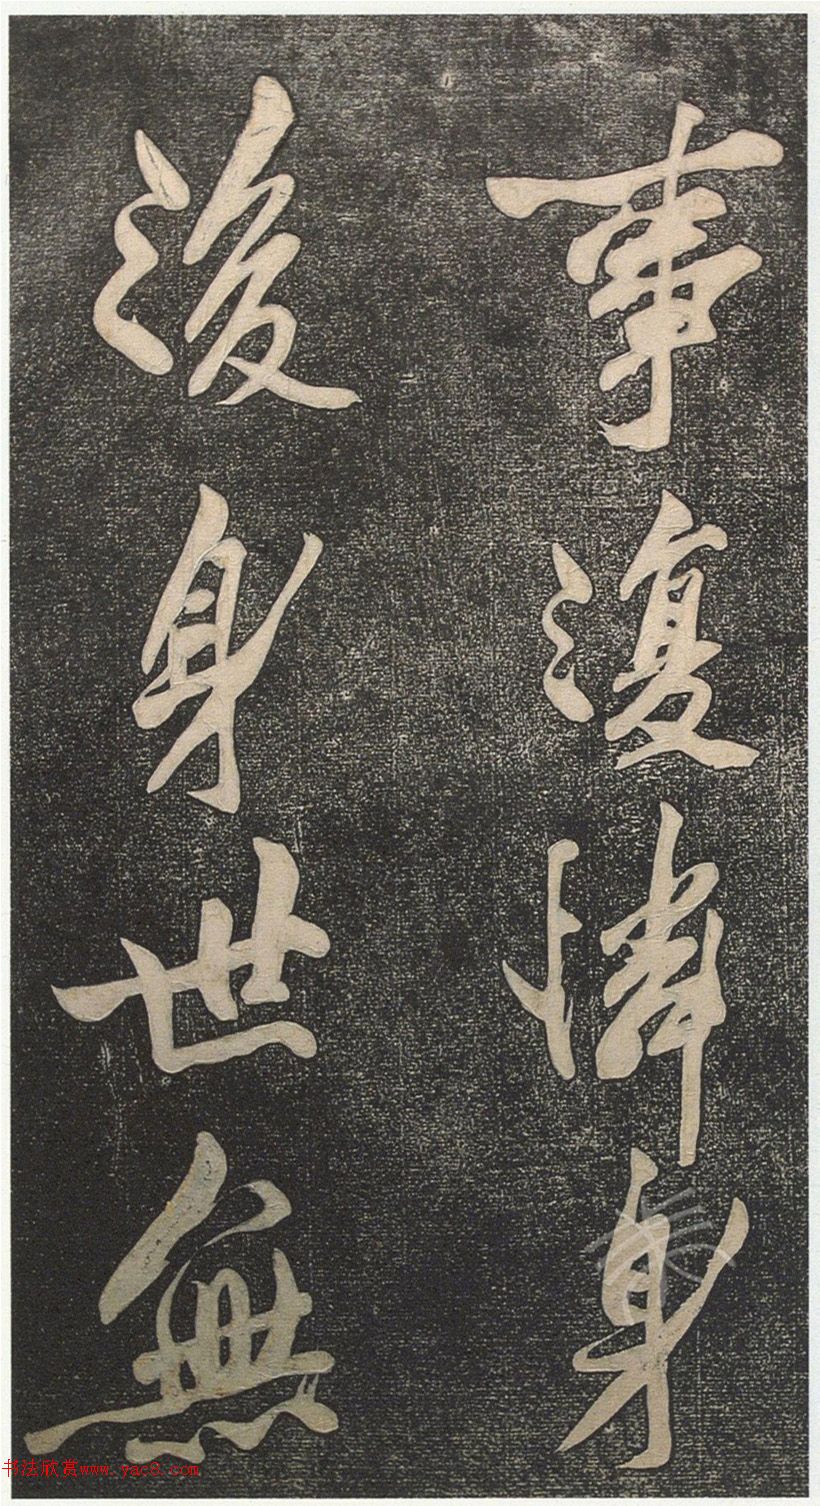 事復憐身
後身世無
书法欣赏www.yac8.com